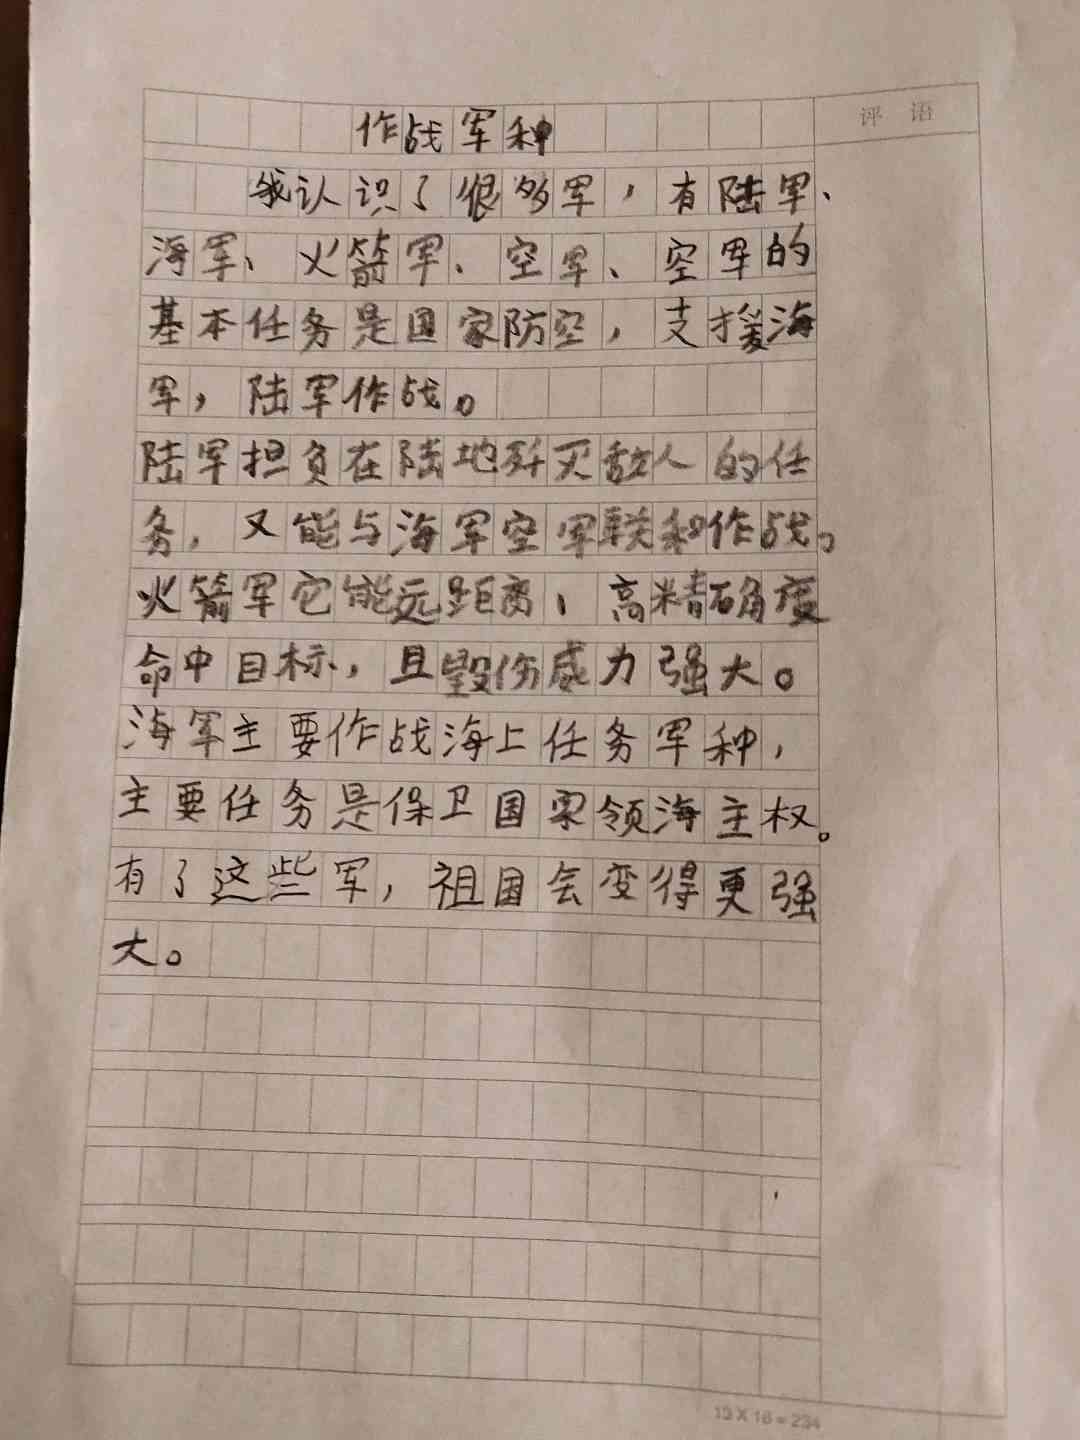 作战军种
评语
我认识了很多军，有陆军、
海军、火箭军、空军、空军的
基本任务是国家防空，支援海
军，陆军作战。
陆军担负在陆地歼灭敌人的任
务，又能与海军空军联和作战。
火箭军它能远距离，高精确度
命中目标，且毁伤感力强大。
海军主要作战海上任务军种，
主要任务是保卫国家领海主权。
有了这些军，祖国会变得更强
大。
13×18=234